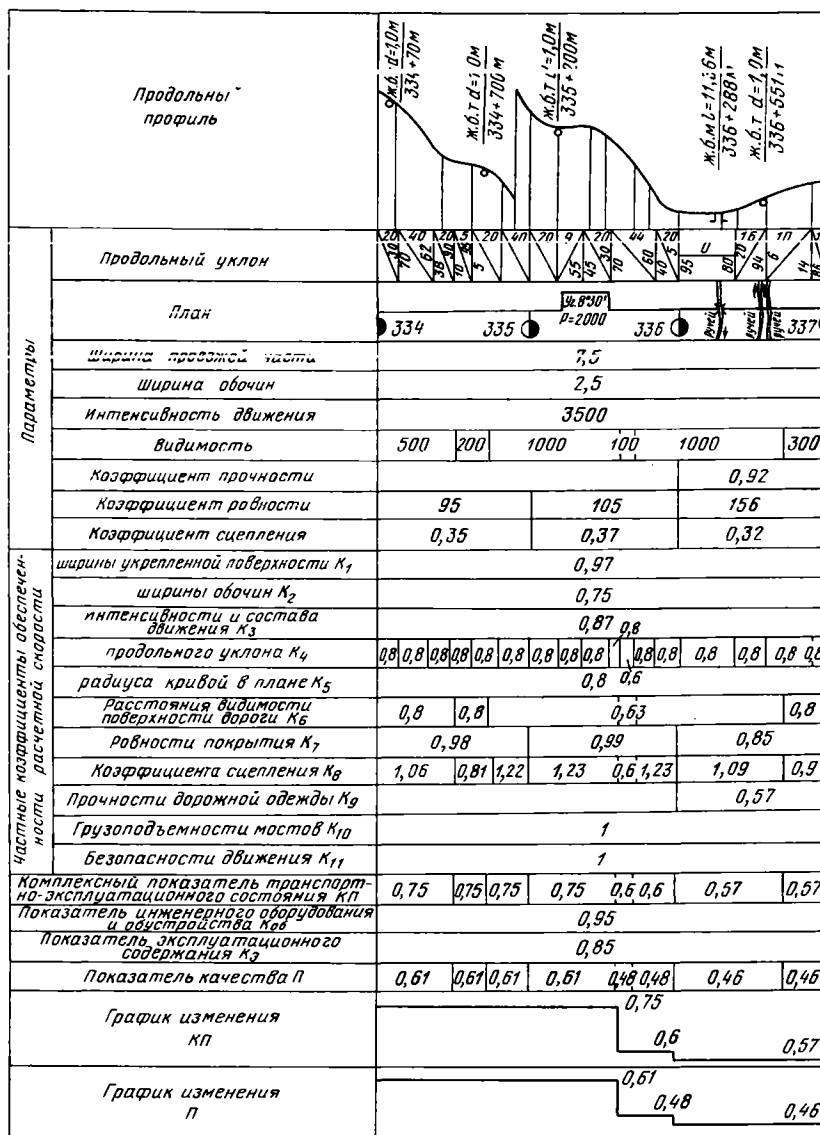 Продольный
профиль
ж.б. d=1,0м
334+70м
ж.б.т d=1,0м
334+700м
ж.б.т d=1,0м
335+200м
ж.б.м l=11,36м
336+288м
ж.б.т d=1,0м
336+551м
Параметры
Продольный уклон
20 40 20 5 20 40 20 9 20 44 20 U 16 10
30 70 62 38 90 10 95 5 55 45 30 70 60 40 5 95 80 20 94 6 14 86
План
Уг. 8°30'
Р=2000
334 335 336 337
ручей ручей ручей
Ширина проезжей части 7,5
Ширина обочин 2,5
Интенсивность движения 3500
Видимость 500 200 1000 100 1000 300
Коэффициент прочности 0,92
Коэффициент ровности 95 105 156
Коэффициент сцепления 0,35 0,37 0,32
Частные коэффициенты обеспечен-
ности расчетной скорости
ширины укрепленной поверхности К1 0,97
ширины обочин К2 0,75
интенсивности и состава
движения К3 0,87
0,8
продольного уклона К4 0,8 0,8 0,8 0,8 0,8 0,8 0,8 0,8 0,8 0,8 0,8 0,8 0,8 0,8 0,8
радиуса кривой в плане К5 0,8 0,6
Расстояния видимости
поверхности дороги К6 0,8 0,8 0,63 0,8
Ровности покрытия К7 0,98 0,99 0,85
Коэффициента сцепления К8 1,06 0,81 1,22 1,23 0,6 1,23 1,09 0,9
Прочности дорожной одежды К9 0,57
Грузоподъемности мостов К10 1
Безопасности движения К11 1
Комплексный показатель транспорт-
но-эксплуатационного состояния КП 0,75 0,75 0,75 0,75 0,6 0,6 0,57 0,57
Показатель инженерного оборудования
и обустройства Коб 0,95
Показатель эксплуатационного
содержания Кэ 0,85
Показатель качества П 0,61 0,61 0,61 0,61 0,48 0,48 0,46 0,46
График изменения
КП
0,75
0,6
0,57
График изменения
П
0,61
0,48
0,46